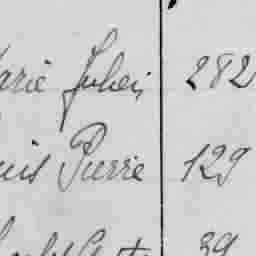 arie Julien 282
uis Pierre 129
39